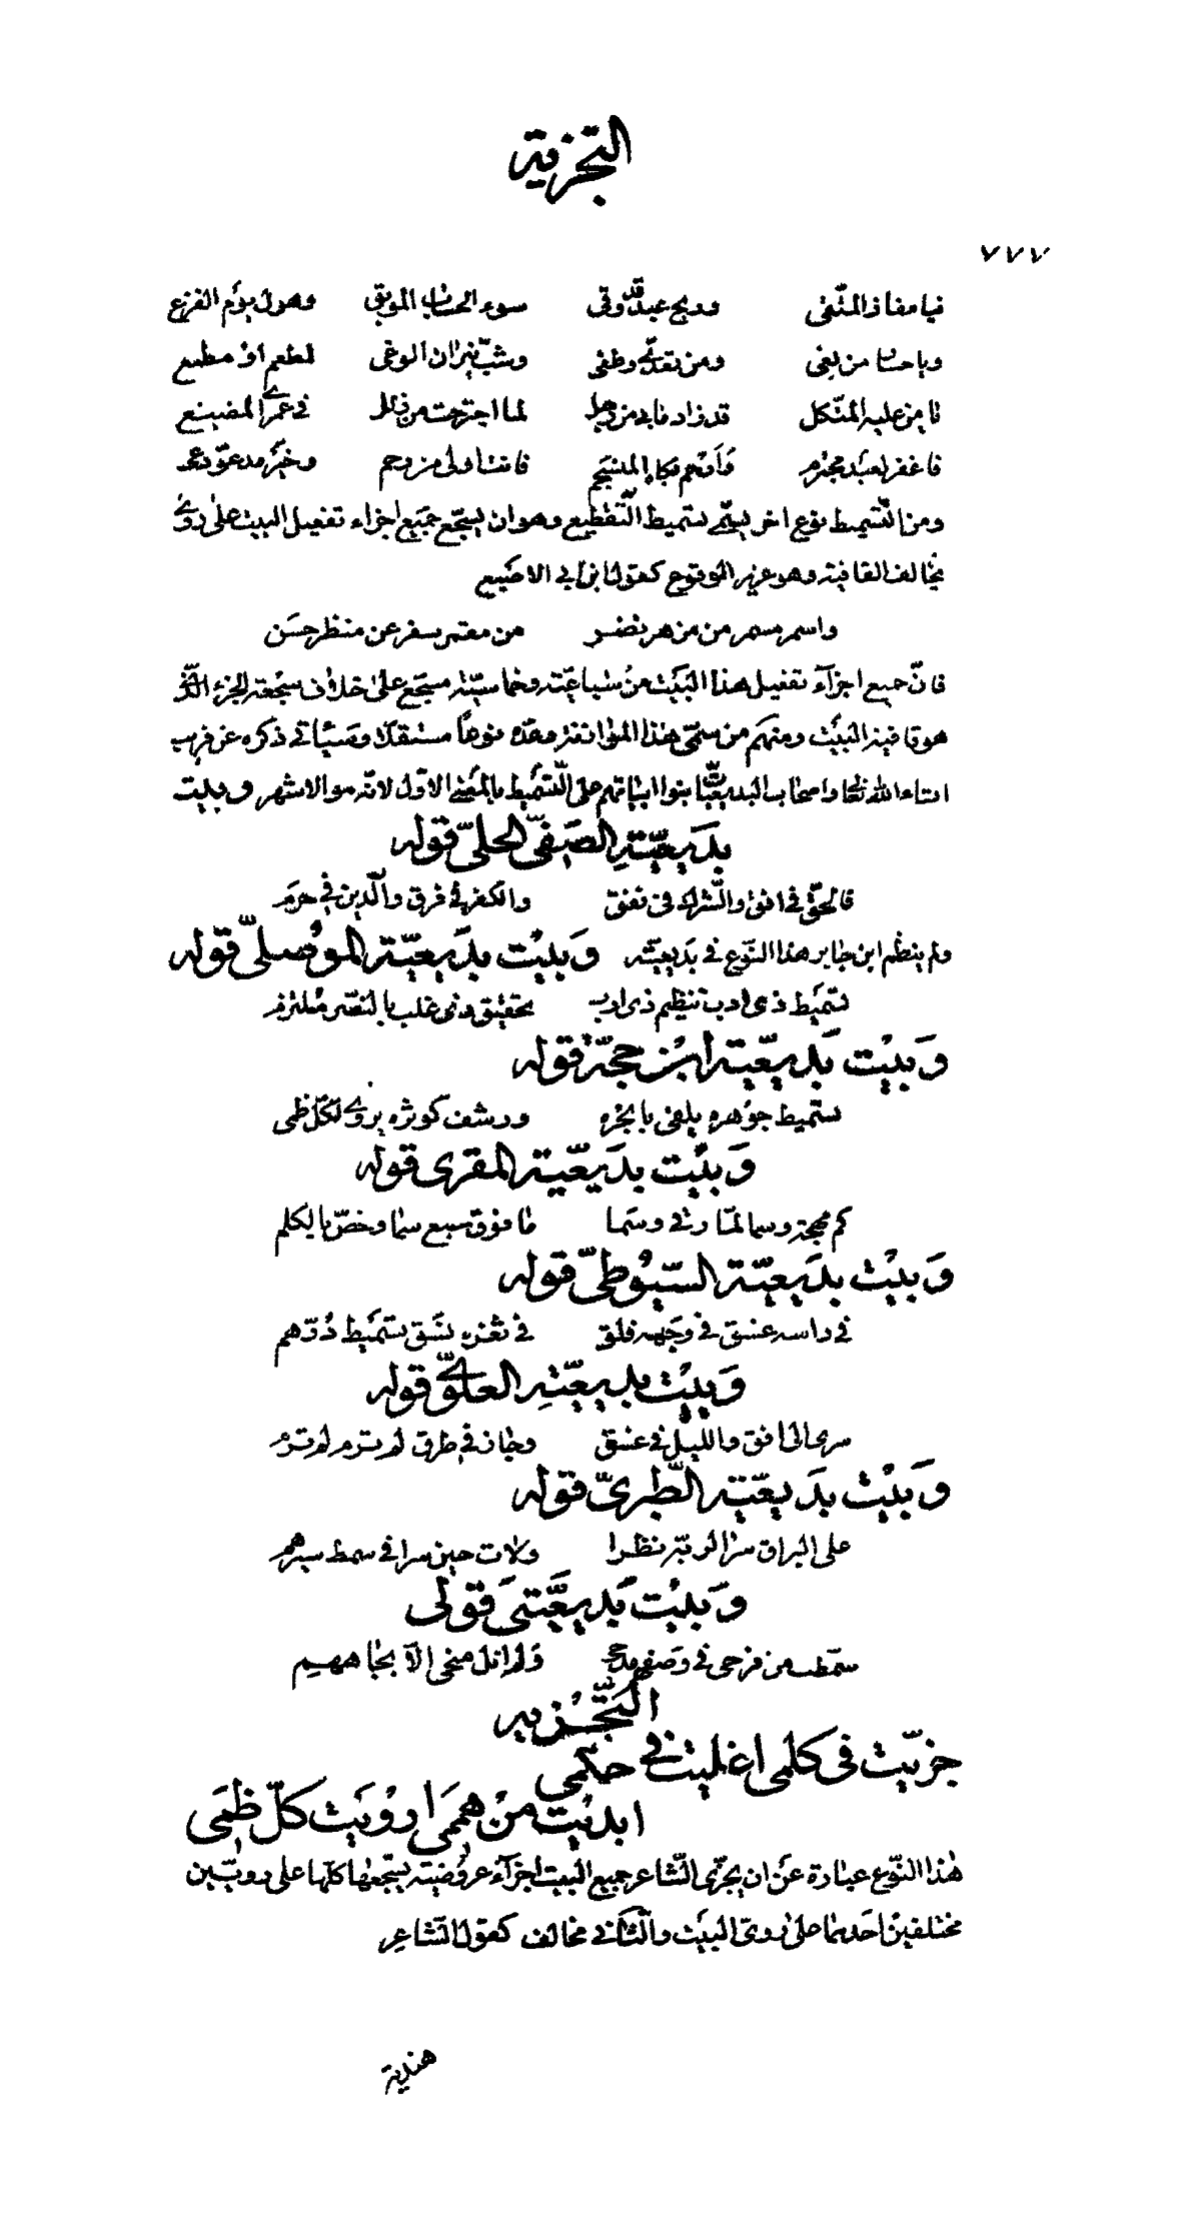 التجزية
٧٧٧
فيا مفاز المتّقي وربح عبد قد وقي سوء الحساب الموبق وهول يوم الفزع
ويا خسار من بغى ومن تعدّى وطغى وشبّ نيران الوغى لمطعم او مطمع
يا من عليه المتّكل قد زاد ما بي من وجل لما اجترحت من زلل في عمري المضيّع
فاغفر لعبد مجترم وارحم بكاه المنسجم فانت اولى من رحم وخير مدعوّ دعي
ومن التّسميط نوع اخر يسمّى تسميط التّقطيع وهو ان يسجّع جميع اجزاء تفعيل البيت على رويّ
يخالف القافية وهو عزيز الوقوع كقول ابن ابي الاصبع
واسمر مسمر من مزهر نضر من مقمر مسفر عن منظر حسن
فانّ جميع اجزآء تفعيل هذا البيت من سباعيّته وخماسيّته مسجّع على خلاف سجعة الجزء الّذي
هو قافية البيت ومنهم من سمّى هذا الموازنة وعدّه نوعاً مستقلاً وسيأتي ذكره عن قريب
انشاء الله تعالى واصحاب البديعيّات بنوا ابياتهم على التّسميط بالمعنى الاوّل لانّه هو الاشهر وبيت
بديعيّة الصّفيّ الحلّيّ قوله
فالحقّ في افق والشّرك في نفق والكفر في فرق والدّين في حرم
ولم ينظم ابن جابر هذا النّوع في بديعيّته وبيت بديعيّة الموصليّ قوله
تسميط ذي ادب تنظيم ذي ارب تحقيق ذي غلب بالنّصر ملتزم
وبيت بديعيّة ابن حجّة قوله
تسميط جوهره يلفى بابحره ورشف كوثره يروي لكلّ ظمي
وبيت بديعيّة المقري قوله
كم مهجة وسما لمّا رقى وسما ما فوق سبع سما وخصّ بالكلم
وبيت بديعيّة السّيوطيّ قوله
في راسه غسق في وجهه فلق في ثغره نسق تسميط درّهم
وبيت بديعيّة العلويّ قوله
سرى الى افق والليل في غسق وجاز في طرق لم ترم لم ترم
وبيت بديعيّة الطّبريّ قوله
على البراق سرا لربّه نظرا ولات حين سرا في سمط سيرهم
وبيت بديعيّتي قولي
سمّطت من فرحي في وصفه مدحي ولم انل منحي الّا بجاههم
التّجزية
جزّيت في كلمي اغليت في حكمي
ابديت من هممي ارويت كلّ ظمي
هذا النّوع عبارة عن ان يجزّي الشّاعر جميع البيت اجزآء عروضيّة يسجّعها كلّها على رويّين
مختلفين احدهما على رويّ البيت والثّاني مخالف كقول الشّاعر
هندية